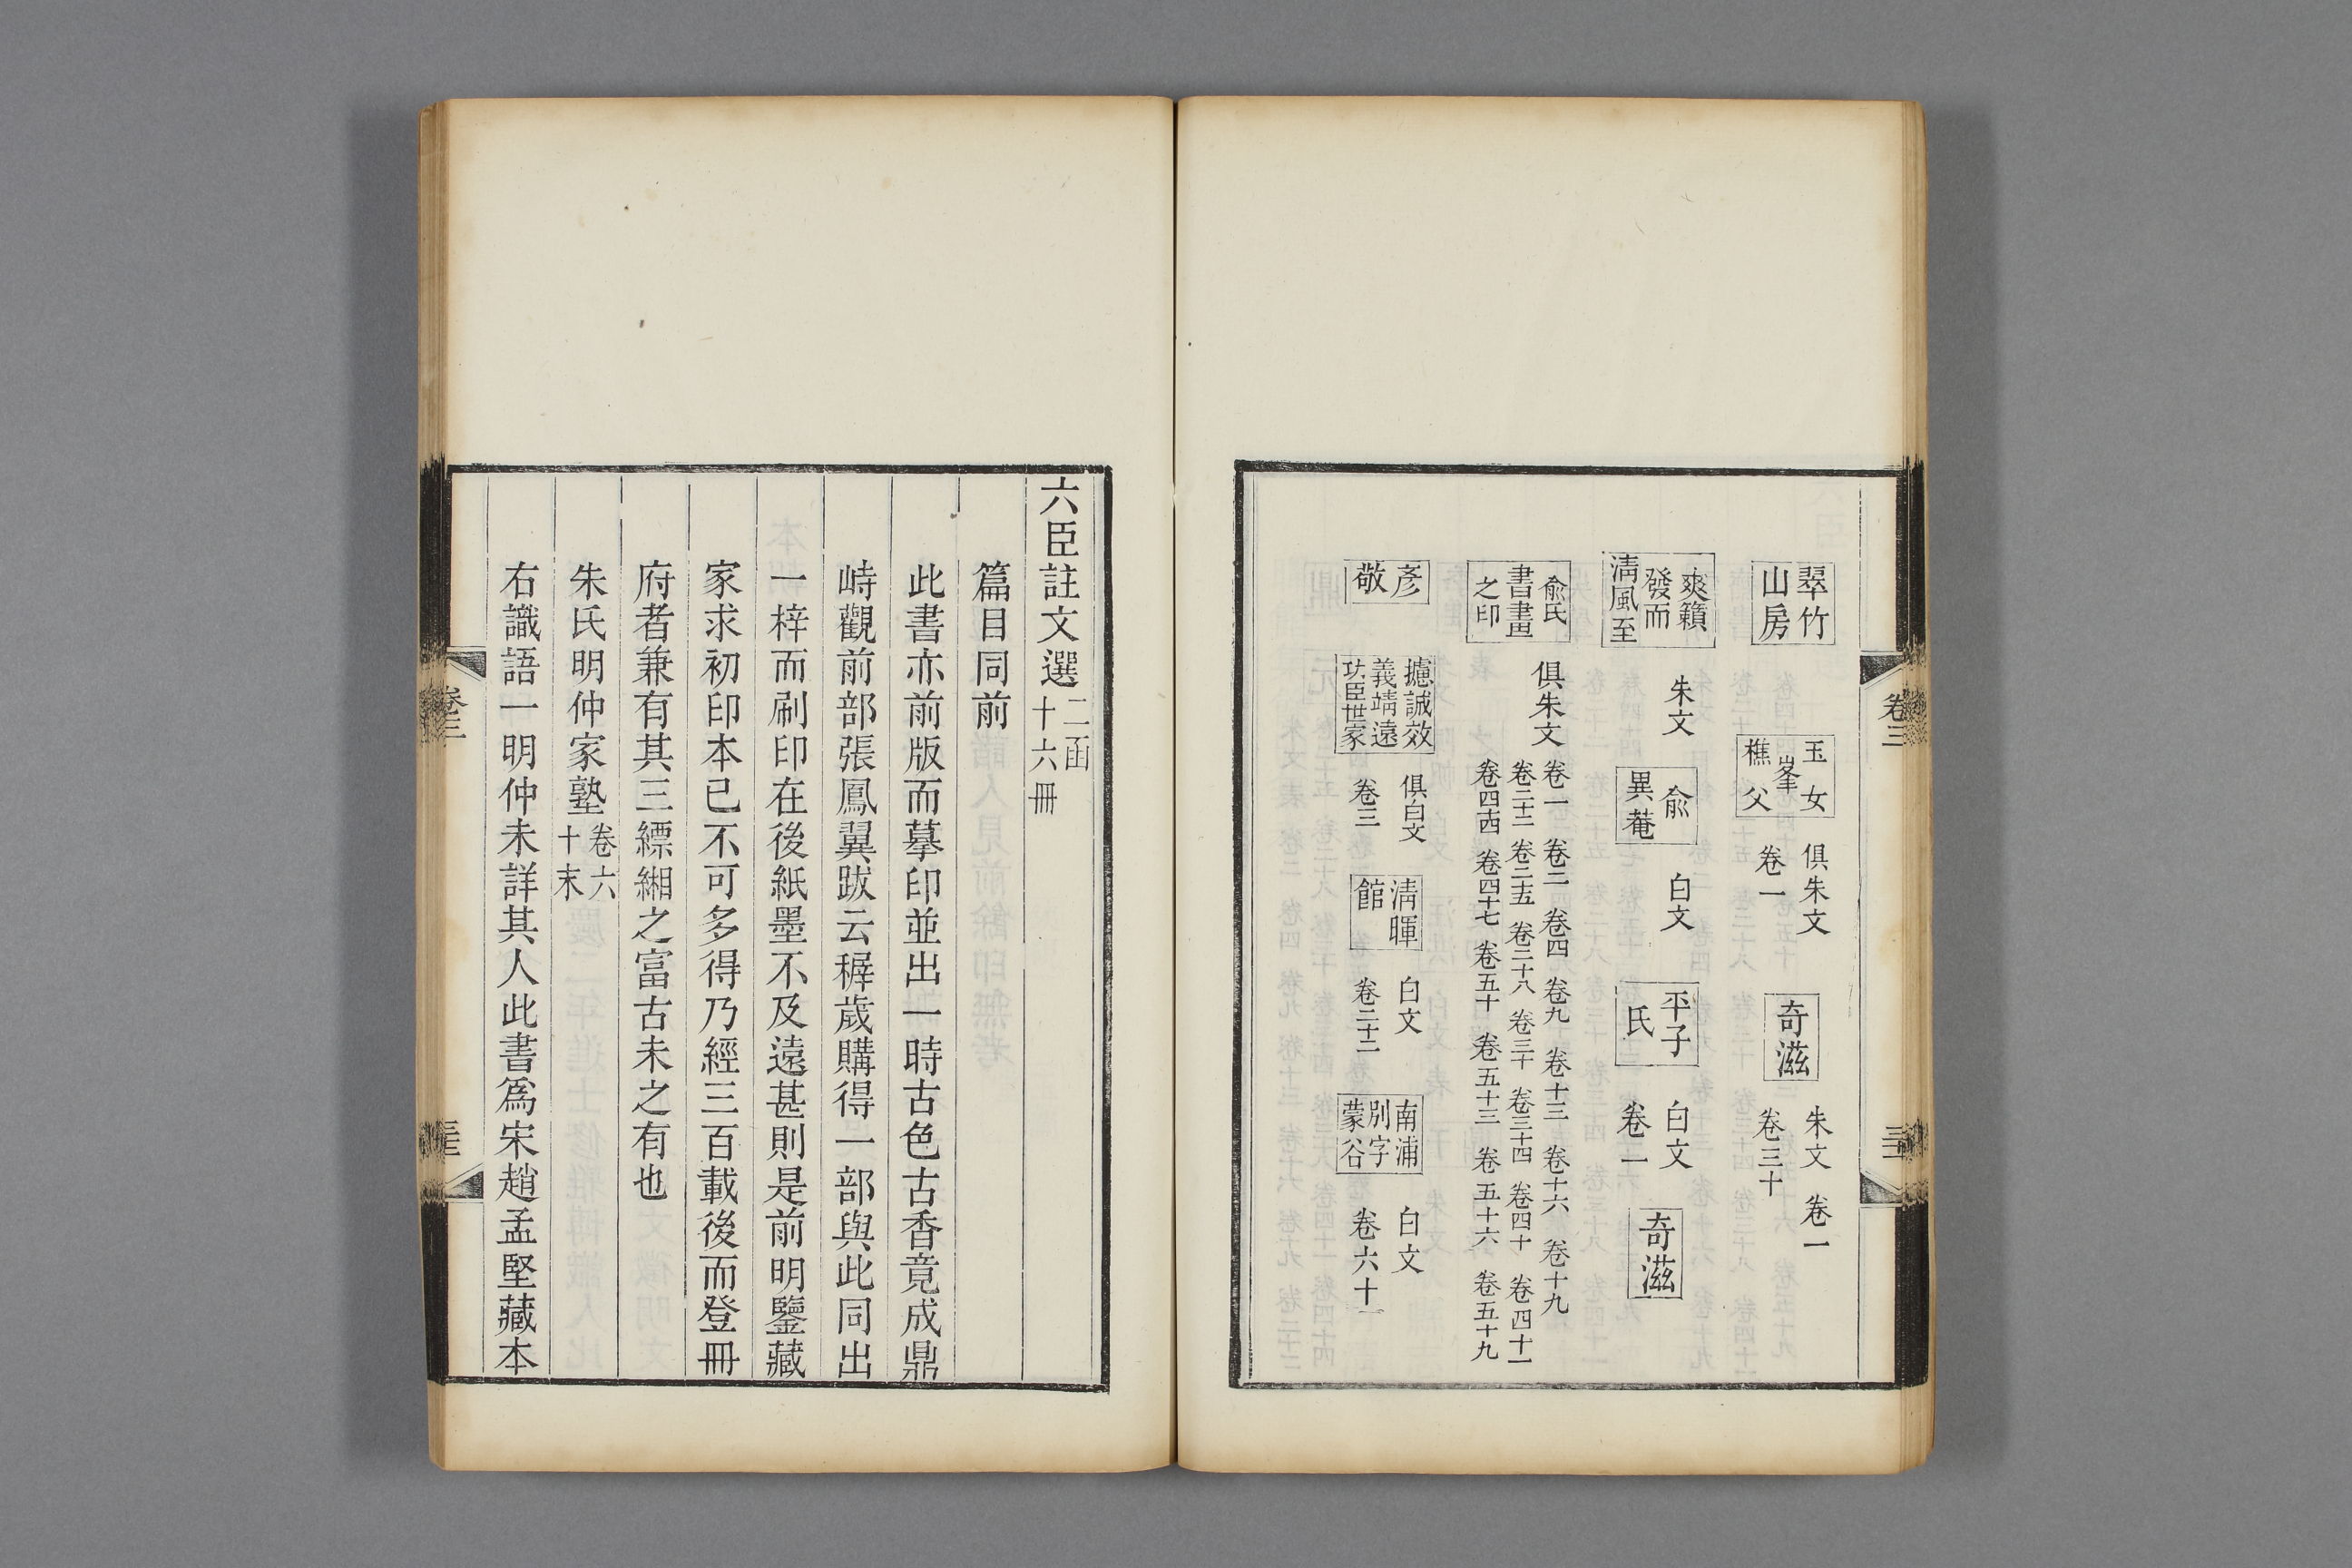 翠竹山房
玉女峯樵父
俱朱文
卷一
奇滋
朱文 卷一
卷三十
爽籟發而淸風至
朱文
俞異菴
白文
平子氏
白文
卷一
奇滋
俞氏書畫之印
俱朱文
卷一 卷二 卷四 卷九 卷十三 卷十六 卷十九
卷二十二 卷二十五 卷二十八 卷三十 卷三十四 卷四十 卷四十一
卷四十四 卷四十七 卷五十 卷五十三 卷五十六 卷五十九
彥敬
攄誠效義靖遠功臣世家
俱白文
卷三
淸暉館
白文
卷二十二
南浦別字蒙谷
白文
卷六十
卷三
六臣註文選 二函十六冊
篇目同前
此書亦前版而摹印並出一時古色古香竟成鼎
峙觀前部張鳳翼跋云穉歲購得一部與此同出
一梓而刷印在後紙墨不及遠甚則是前明鑒藏
家求初印本已不可多得乃經三百載後而登冊
府者兼有其三縹緗之富古未之有也
朱氏明仲家塾 卷六十末
右識語一明仲未詳其人此書爲宋趙孟堅藏本
卷三